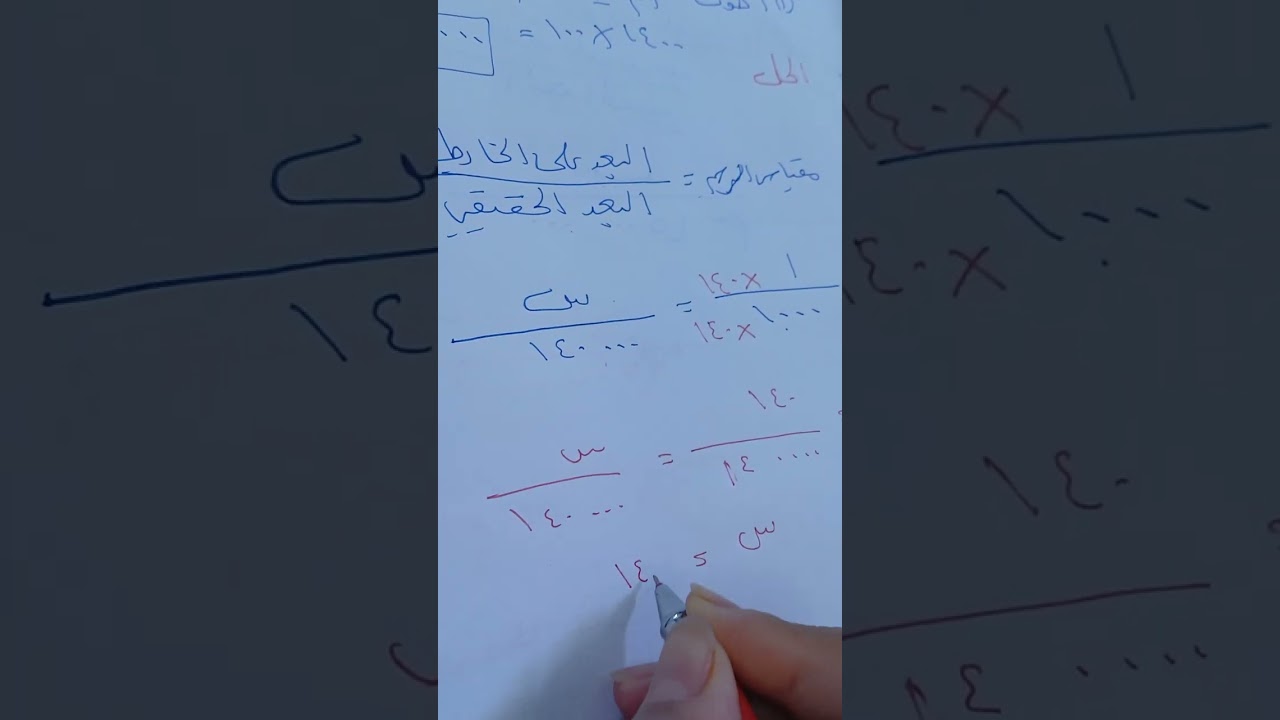 = ١٠٠ × ١٤٠٠
الحل
مقياس الرسم = البعد على الخارط / البعد الحقيقي
١ × ١٤٠ / ١٠٠٠ × ١٤٠ = س / ١٤٠٠٠٠
١٤٠ / ١٤٠٠٠٠ = س / ١٤٠٠٠٠
س = ١٤